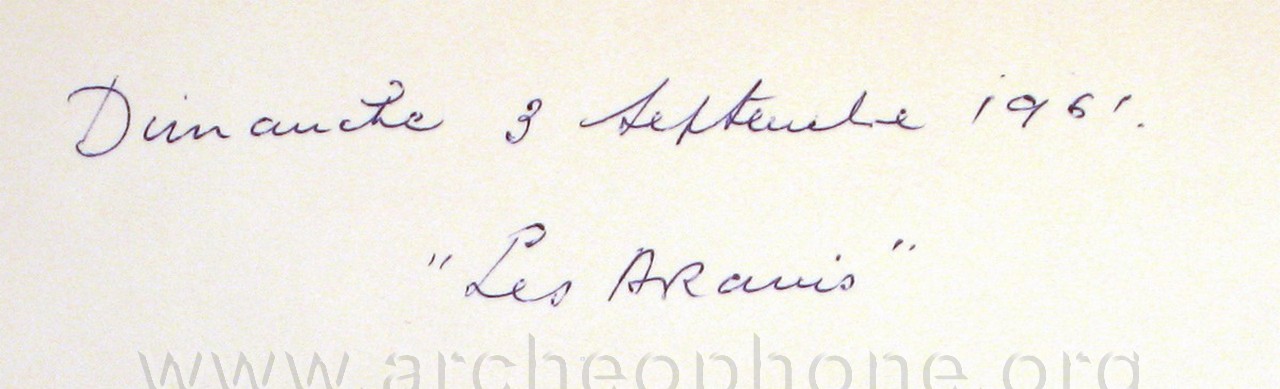 Dimanche 3 Septembre 1961.
"Les Aravis"
www.archeophone.org